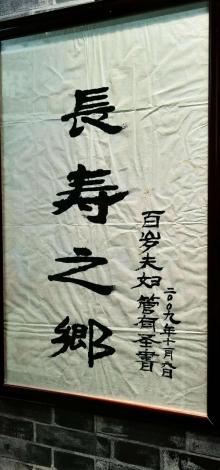 長寿之鄉
百岁夫妇管有圣書
二〇〇九年十一月八日